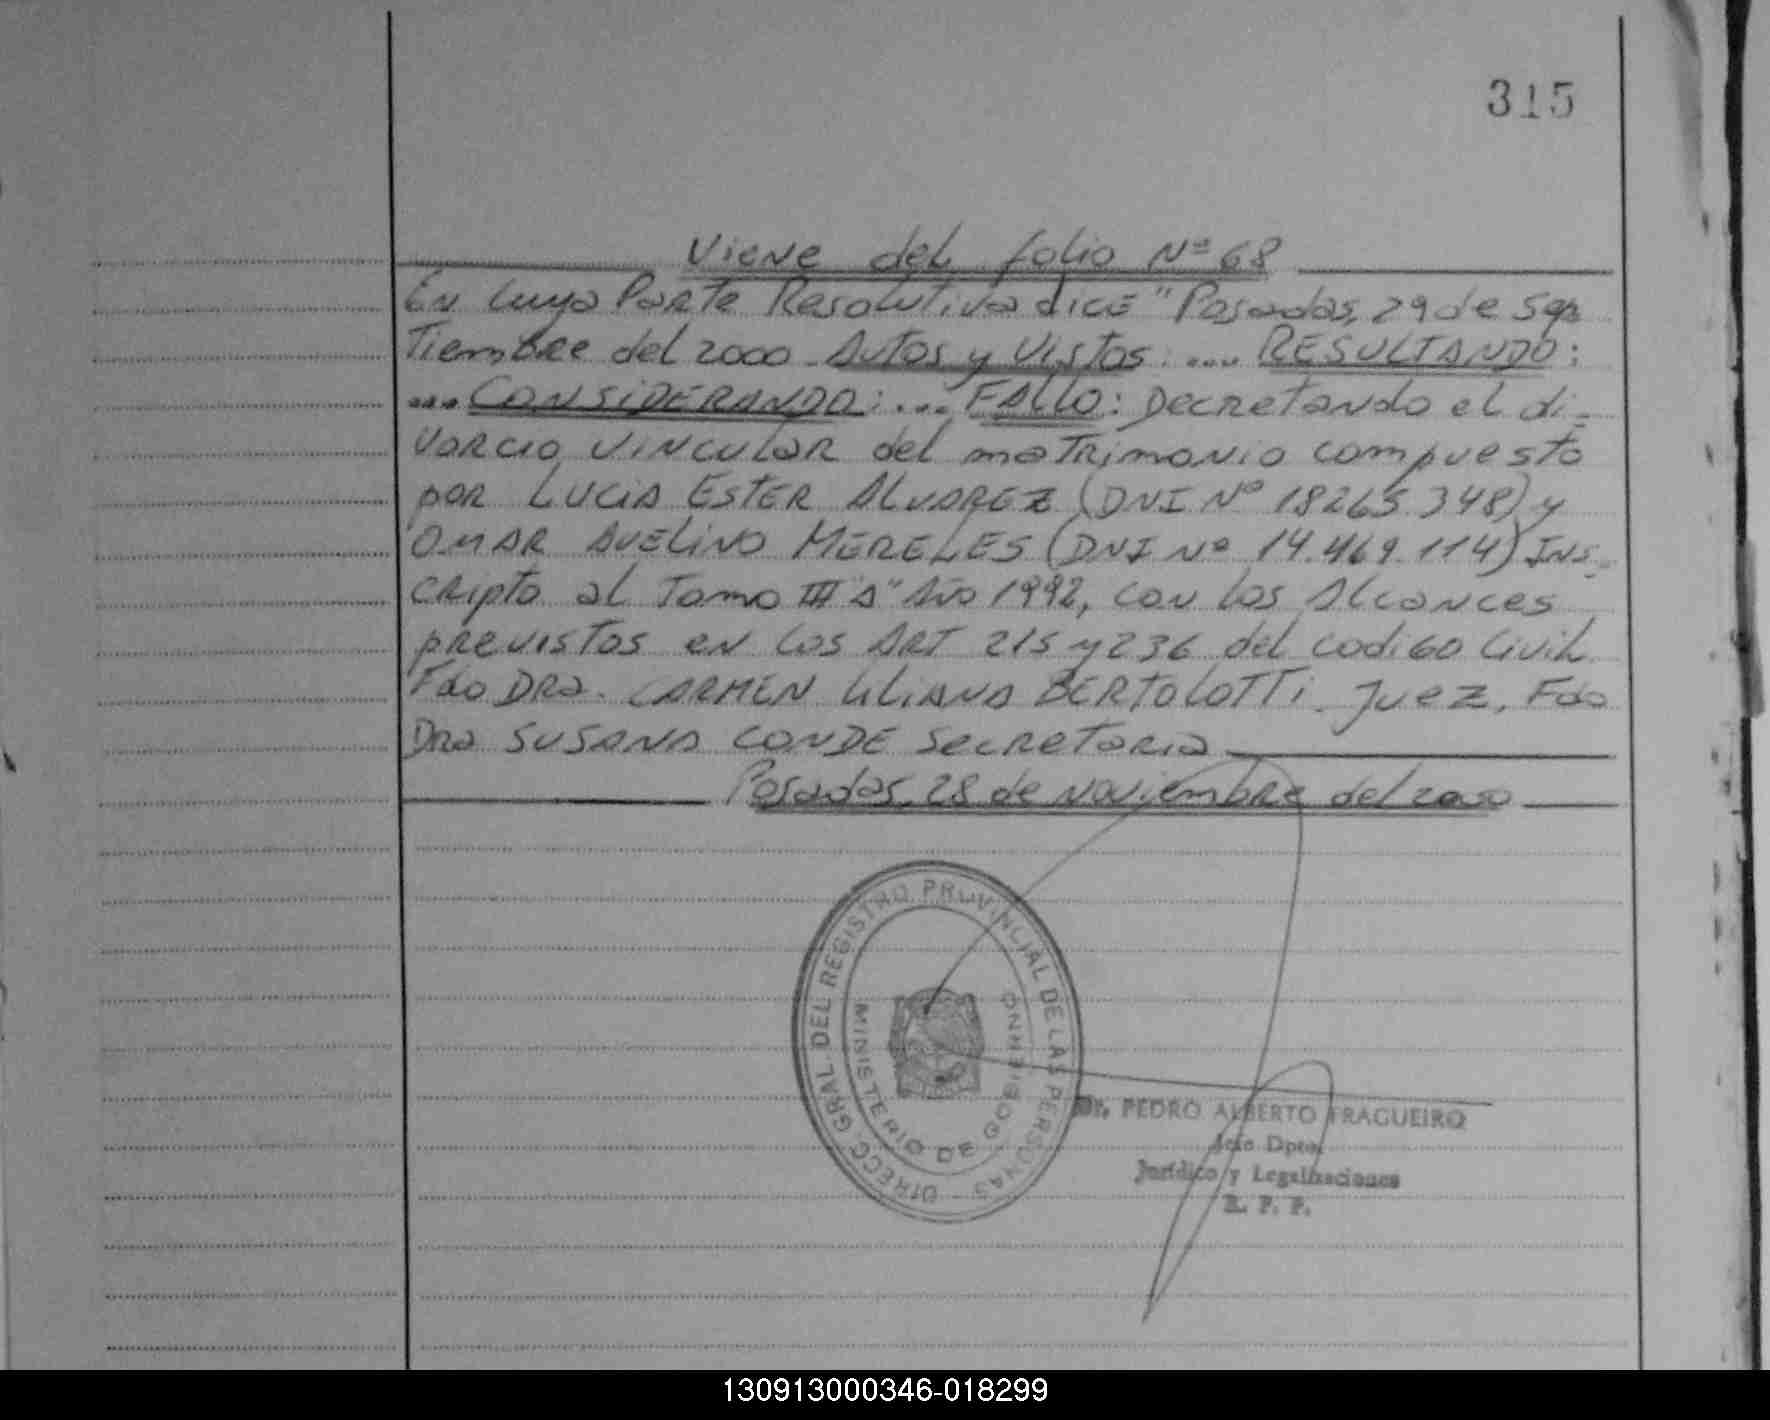 315
Viene del folio Nº 68
En cuya Parte Resolutiva dice "Posadas, 29 de Sep
Tiembre del 2000 Autos y Vistos: .... RESULTANDO:
... CONSIDERANDO: ... FALLO: Decretando el di-
vorcio vincular del matrimonio compuesto
por LUCIA ESTER ALVAREZ (DNI Nº 18265.348) y
OMAR AVELINO MERELES (DNI Nº 14.469.114) Ins-
cripto al Tomo III "A" Año 1992, con los Alcances
previstos en los ART 215 y 236 del codigo Civil.
Fdo DRA. CARMEN LILIANA BERTOLOTTI. Juez, Fdo
Dra SUSANA CONDE Secretaria
Posadas, 28 de Noviembre del 2000
DIRECC GRAL DEL REGISTRO PROVINCIAL DE LAS PERSONAS
MINISTERIO DE GOBIERNO
Dr. PEDRO ALBERTO FRAGUEIRO
Jefe Dpto.
Jurídico y Legalizaciones
R. P. P.
130913000346-018299